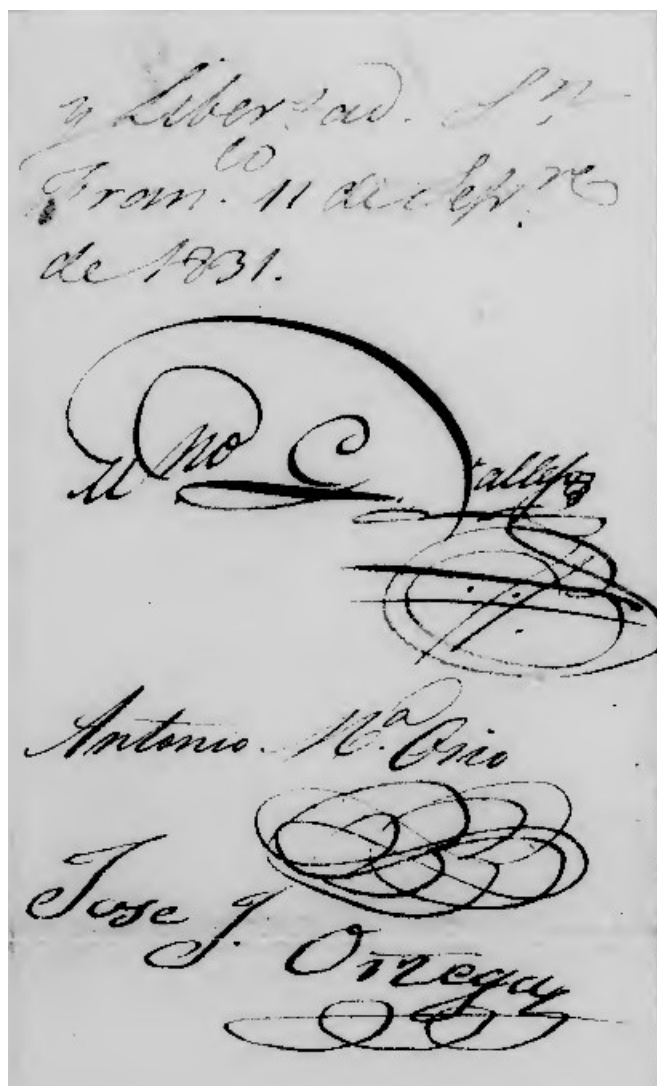 y Libertad. Sn.
Franco. 11 de Sepre.
de 1831.
M. no G. Vallejo
Antonio Ma. Osio
Jose J. Ortega